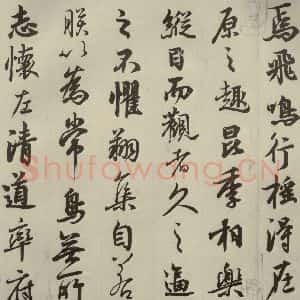 焉飛鳴行摇得在
原之趣昆季相樂
縱目而觀者久之逼
之不懼翔集自若
朕以為常鳥無所
志懷左清道率府
Shufawang.CN